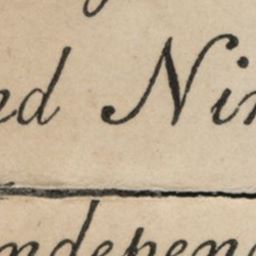 nd Nin
ndepend